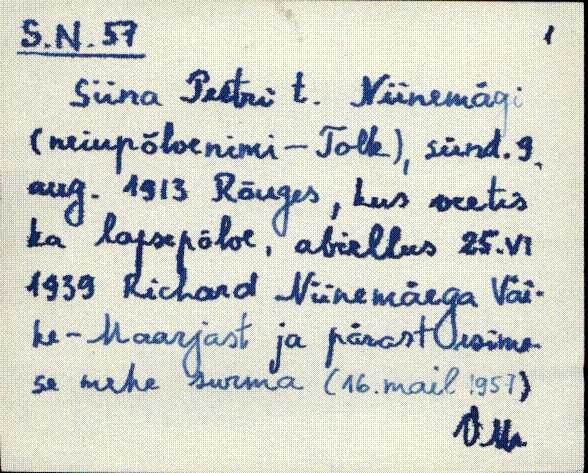 S.N. 57
1
Siina Peetri t. Niinemägi
(neiupõlvenimi – Tolk), sünd. 9.
aug. 1913 Rõuges, kus veetis
ka lapsepõlve, abiellus 25.VI
1939 Richard Niinemäega Väi-
ke-Maarjast ja pärast esime-
se mehe surma (16. mail 1957)